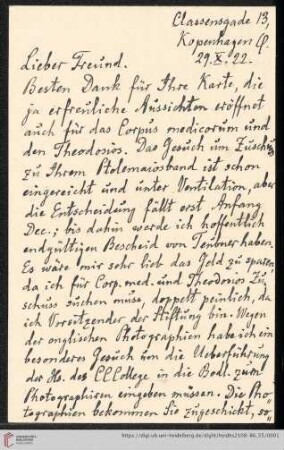 Classensgade 13,
Kopenhagen Ø.
29.X.22.
Lieber Freund.
Besten Dank für Ihre Karte, die
ja erfreuliche Aussichten eröffnet
auch für das Corpus medicorum und
den Theodosios. Das Gesuch um Zuschuß
zu Ihrem Ptolemaiosband ist schon
eingereicht und unter Ventilation, aber
die Entscheidung fällt erst Anfang
Dec.; bis dahin werde ich hoffentlich
endgültigen Bescheid von Teubner haben.
Es wäre mir sehr lieb das Geld zu sparen,
da ich für Corp. med. und Theodosios Zu-
schuss suchen muss, doppelt peinlich, da
ich Vorsitzender der Stiftung bin. Wegen
der englischen Photographien habe ich ein
besonderes Gesuch um die Ueberführung
der Hs. des CCCollege in die Bodl. zum
Photographiren eingeben müssen. Die Pho-
tographien bekommen Sie zugeschickt, so-
UNIVERSITÄTS-
BIBLIOTHEK
HEIDELBERG